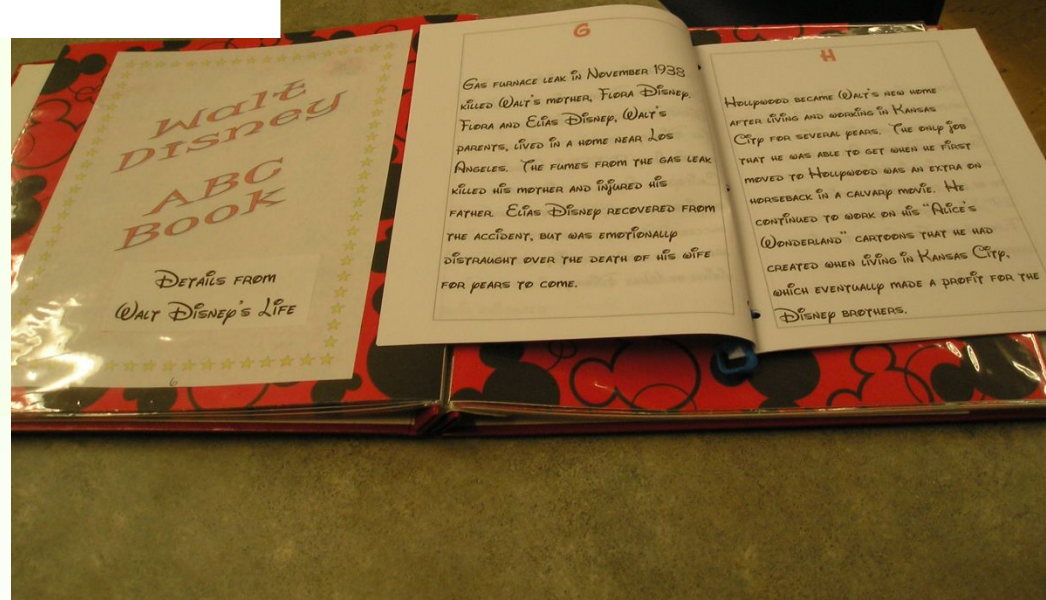 Walt
Disney
ABC
Book
Details from
Walt Disney's Life
G
Gas furnace leak in November 1938
killed Walt's mother, Flora Disney.
Flora and Elias Disney, Walt's
parents, lived in a home near Los
Angeles. The fumes from the gas leak
killed his mother and injured his
father. Elias Disney recovered from
the accident, but was emotionally
distraught over the death of his wife
for years to come.
H
Hollywood became Walt's new home
after living and working in Kansas
City for several years. The only job
that he was able to get when he first
moved to Hollywood was an extra on
horseback in a calvary movie. He
continued to work on his "Alice's
Wonderland" cartoons that he had
created when living in Kansas City,
which eventually made a profit for the
Disney brothers.